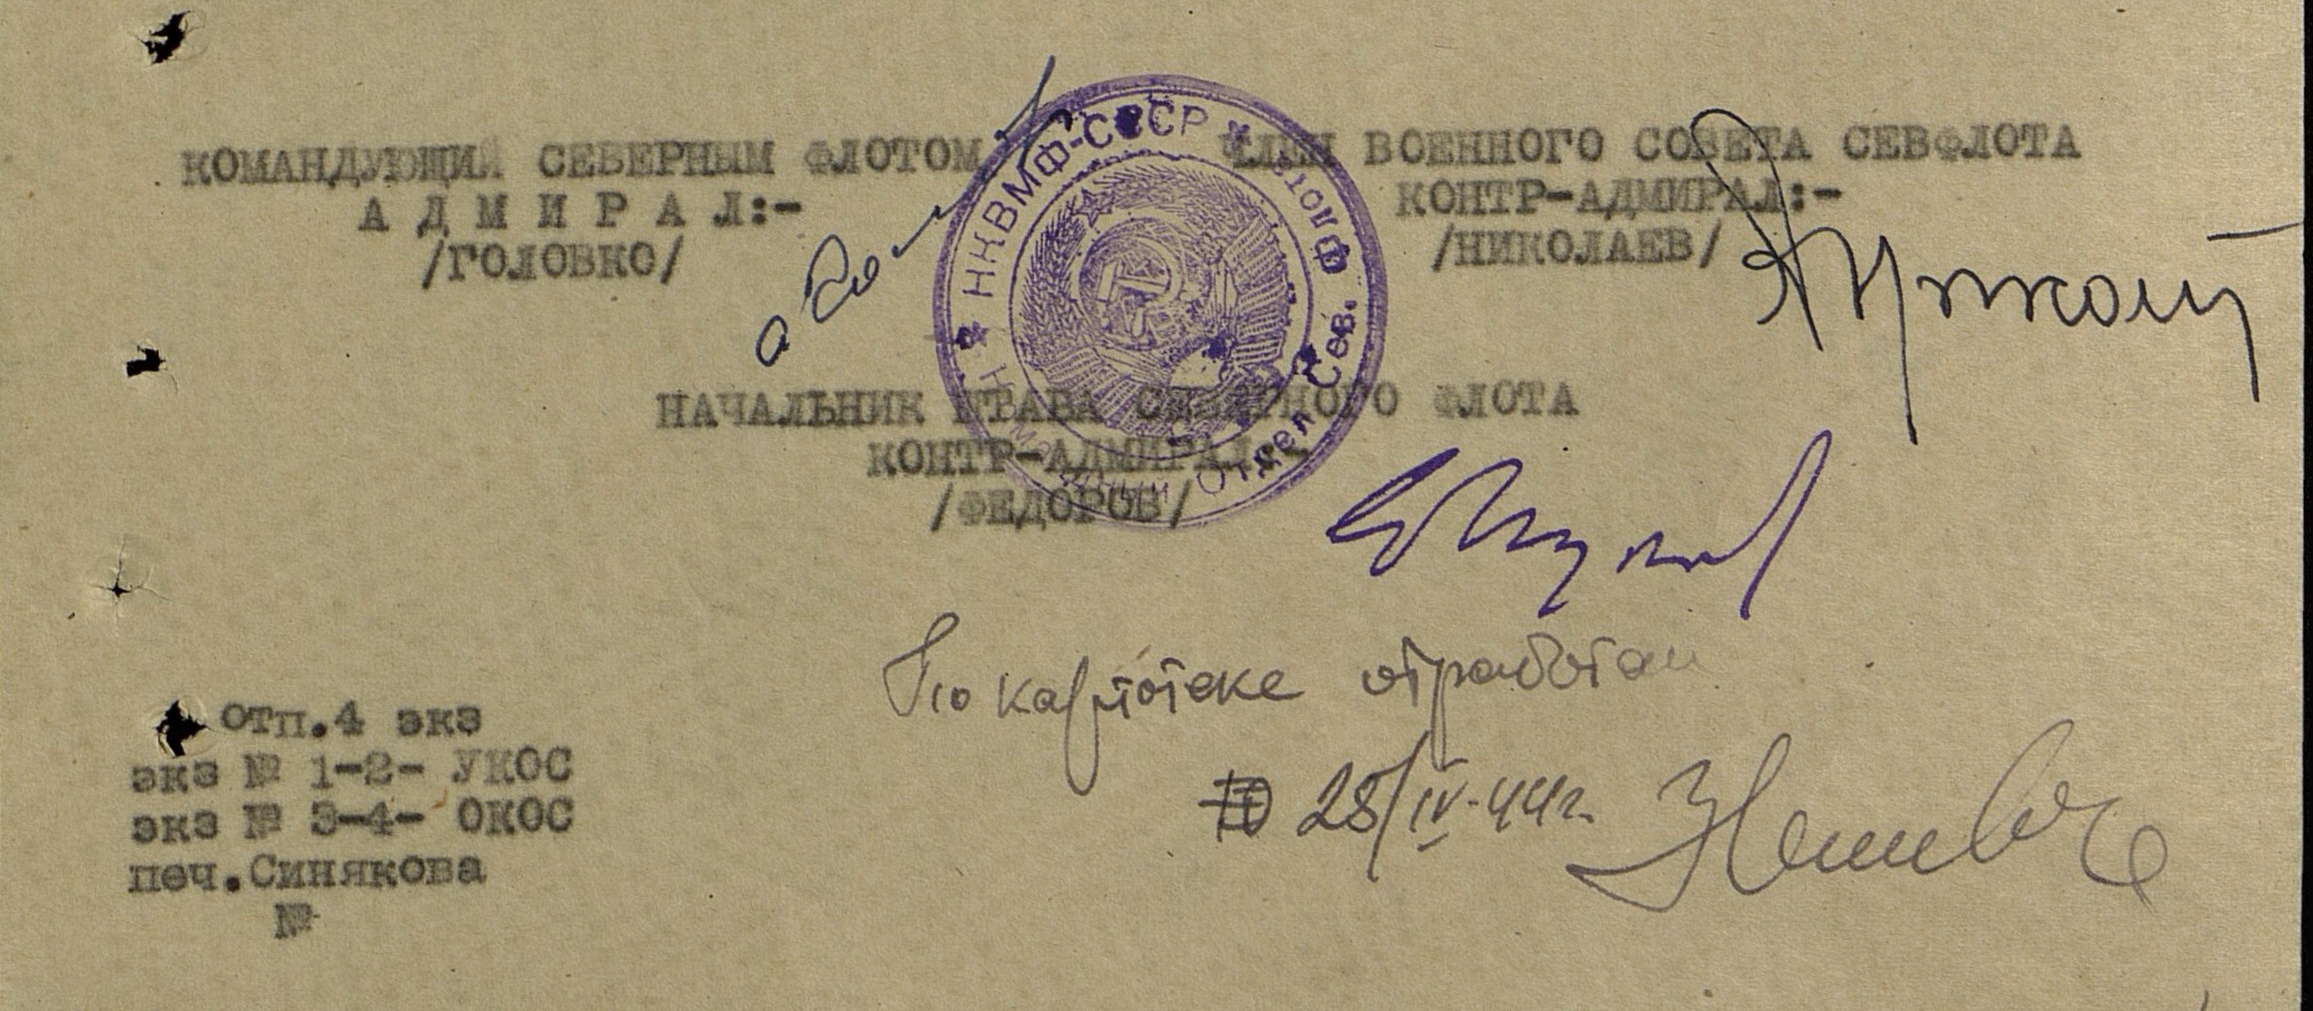 КОМАНДУЮЩИЙ СЕВЕРНЫМ ФЛОТОМ
А Д М И Р А Л:-
/ГОЛОВКО/
ЧЛЕН ВОЕННОГО СОВЕТА СЕВФЛОТА
КОНТР-АДМИРАЛ:-
/НИКОЛАЕВ/
НКВМФ-СССР
Отдел Сев. Флота
НАЧАЛЬНИК ШТАБА СЕВЕРНОГО ФЛОТА
КОНТР-АДМИРАЛ:-
/ФЕДОРОВ/
По картотеке отработан
28/IV-44г.
отп.4 экз
экз № 1-2- УКОС
экз № 3-4- ОКОС
печ.Синякова
№